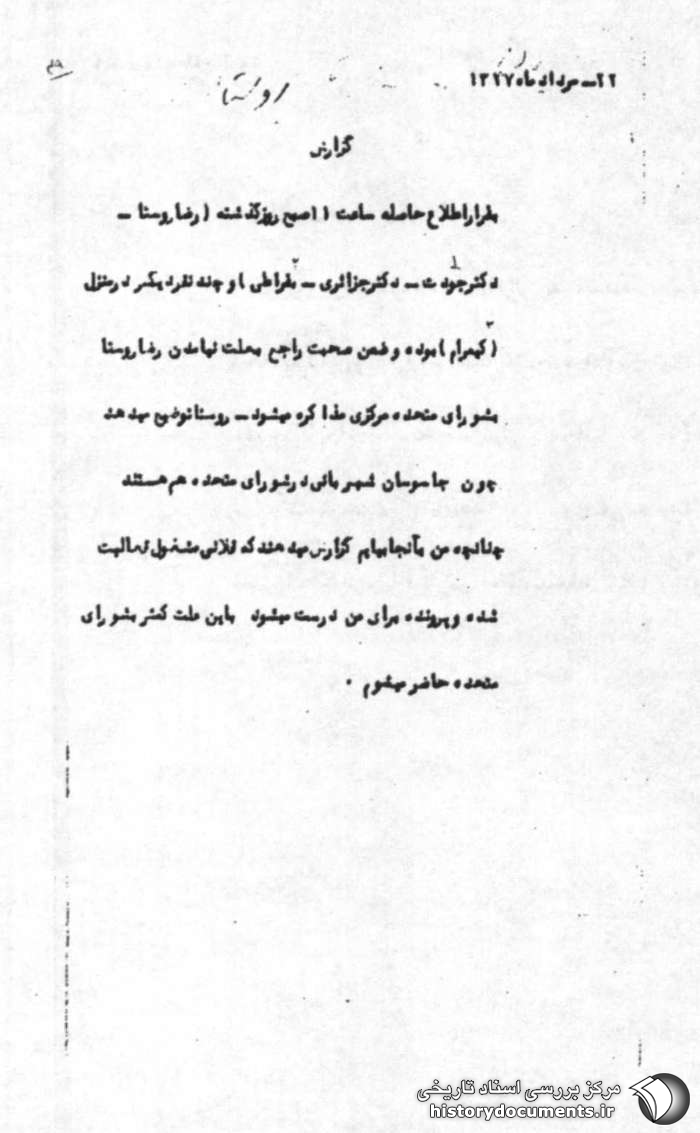 ۲۲ــ مرداد ماه ۱۳۲۷
روستا
گزارش
بقرار اطلاع حاصله ساعت ۱۱ صبح روز گذشته (رضا روستا ــ
دکتر جودت ــ دکتر جزائری ــ بقراطی) و چند نفر دیگر در منزل
(کیمرام) بوده و ضمن صحبت راجع بعلت نیامدن رضا روستا
بشورای متحده مرکزی مذاکره میشود ــ روستا توضیح میدهد
چون جاسوسان شهربانی در شورای متحده هم هستند
چنانچه من بآنجا بیایم گزارش میدهند که فلانی مشغول فعالیت
شده و پرونده برای من درست میشود باین علت کمتر بشورای
متحده حاضر میشوم .
مرکز بررسی اسناد تاریخی
historydocuments.ir